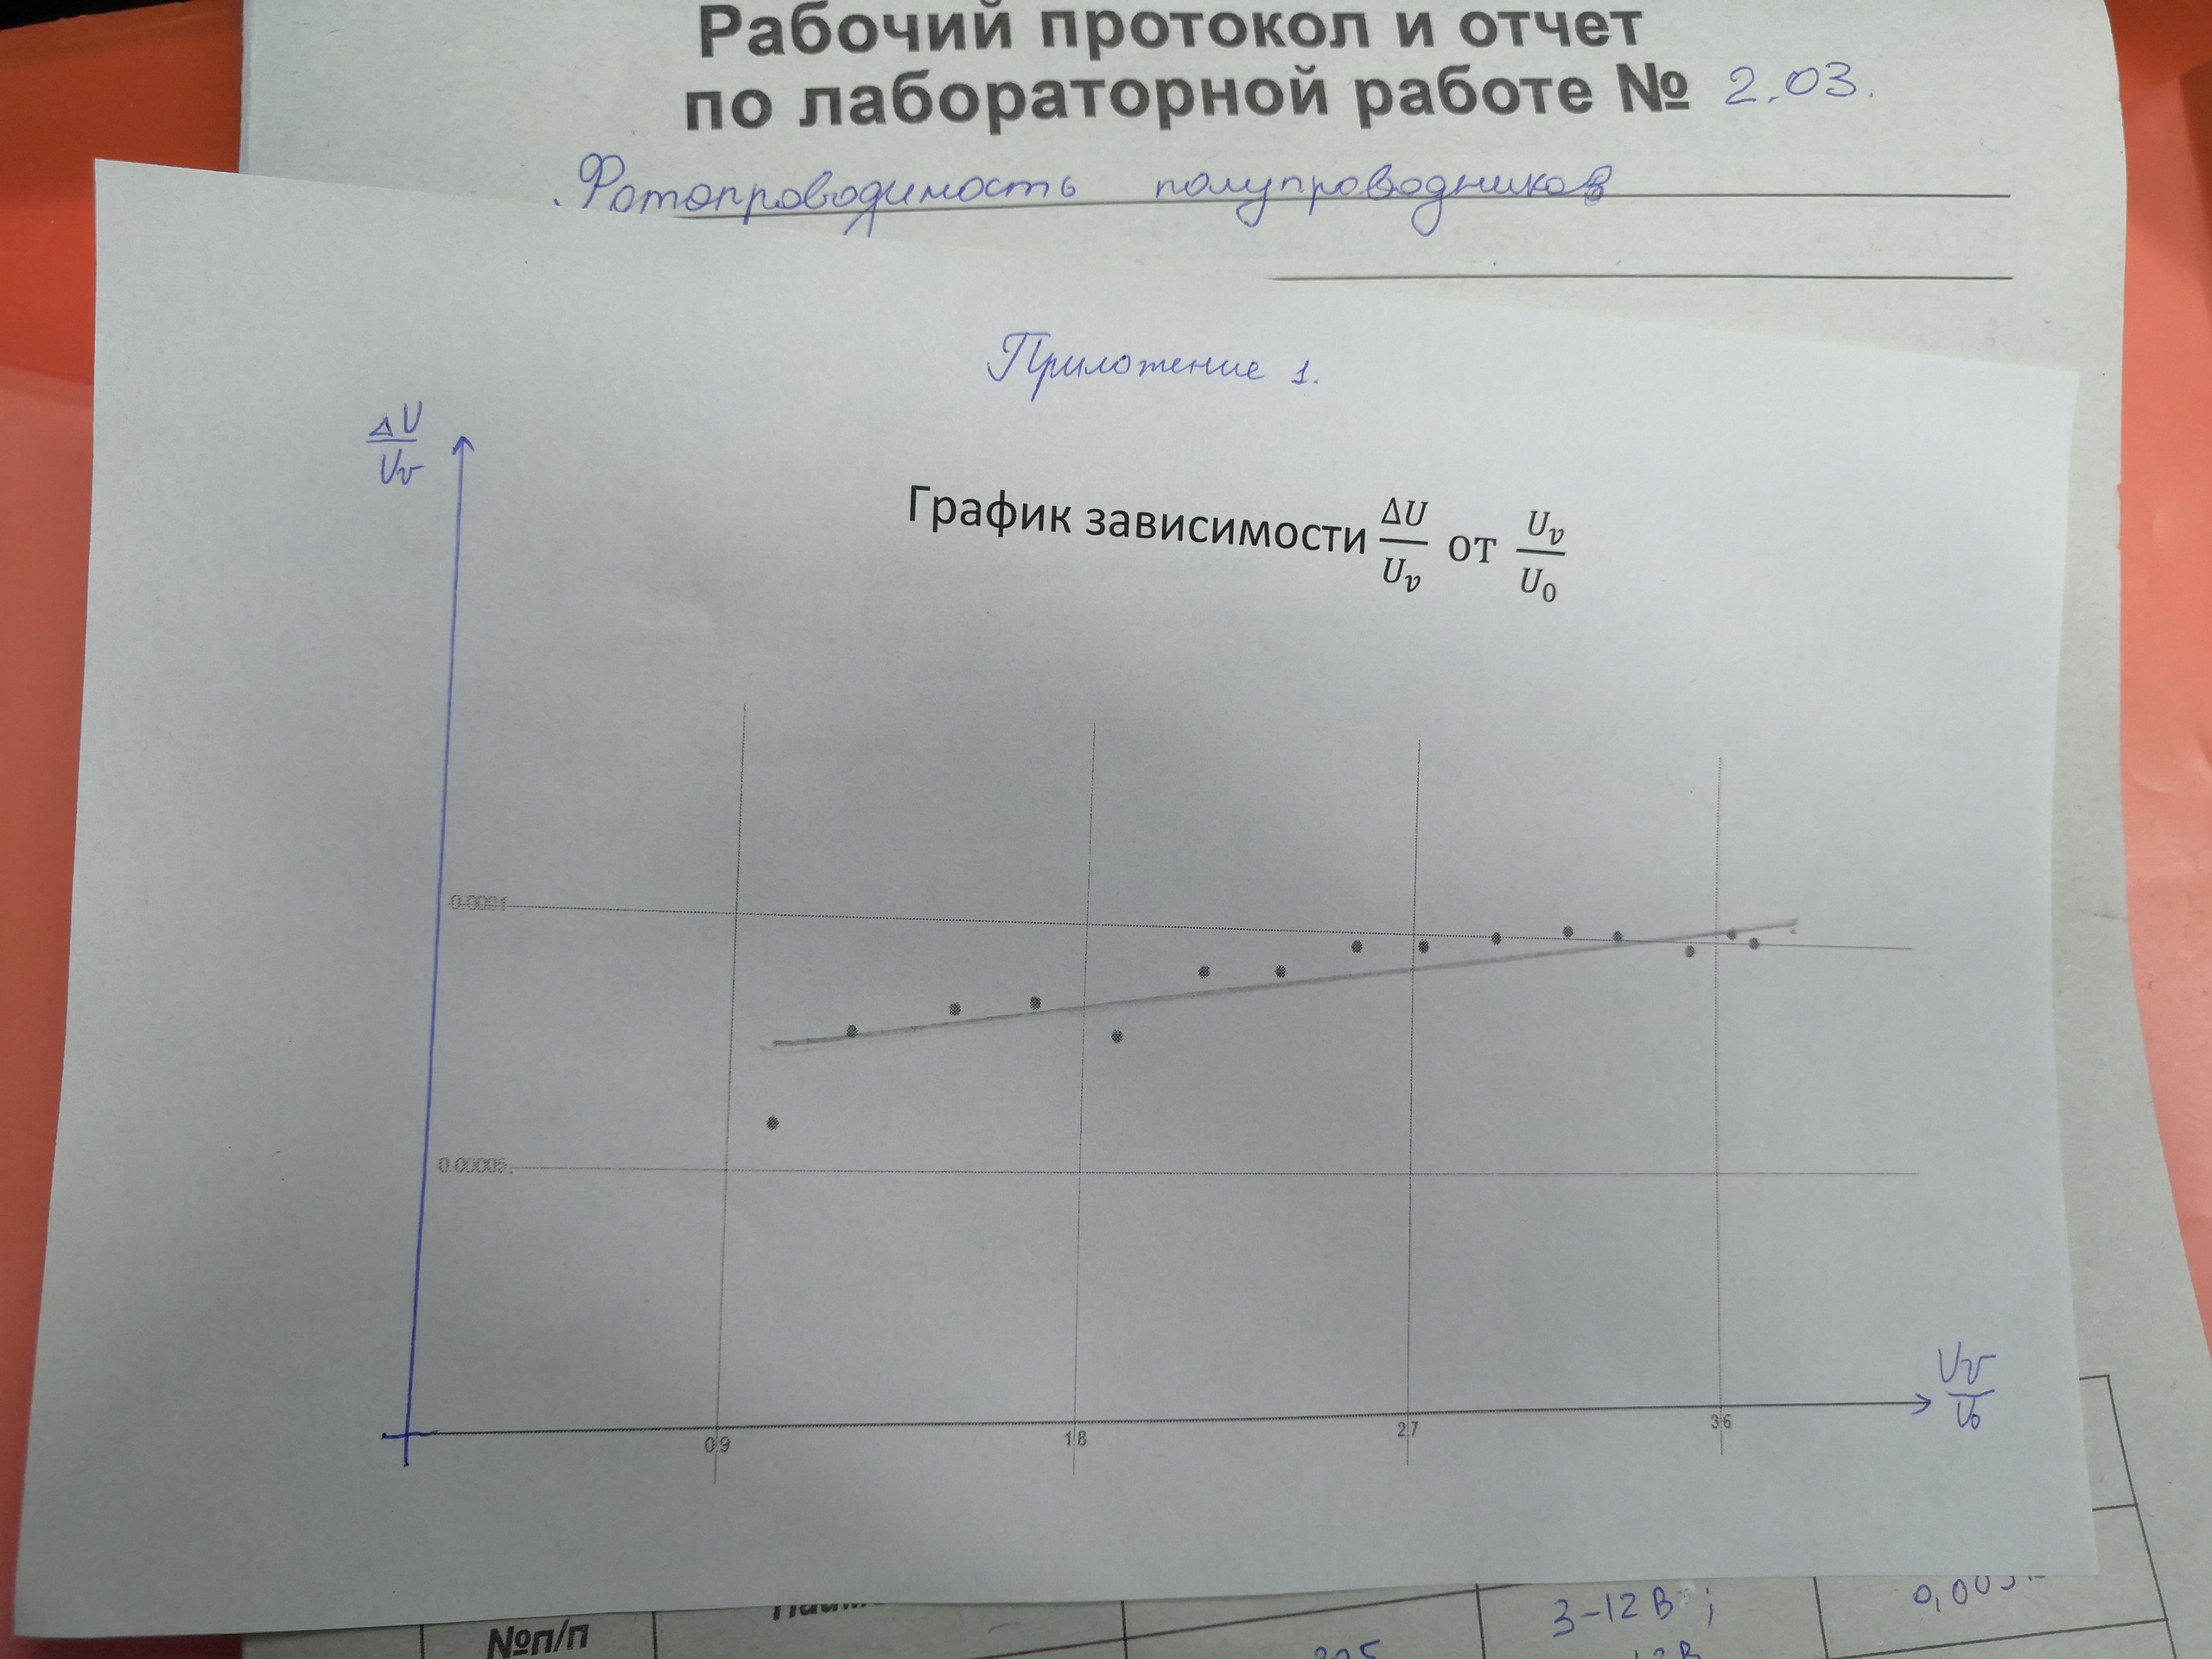 Рабочий протокол и отчет
по лабораторной работе № 2.03.
Фотопроводимость полупроводников
Приложение 1.
ΔU
Uv
График зависимости ΔU/Uv от Uv/U0
0.0001
0.00005
0.9 1.8 2.7 3.6
Uv
U0
№п/п
3-12 В ;